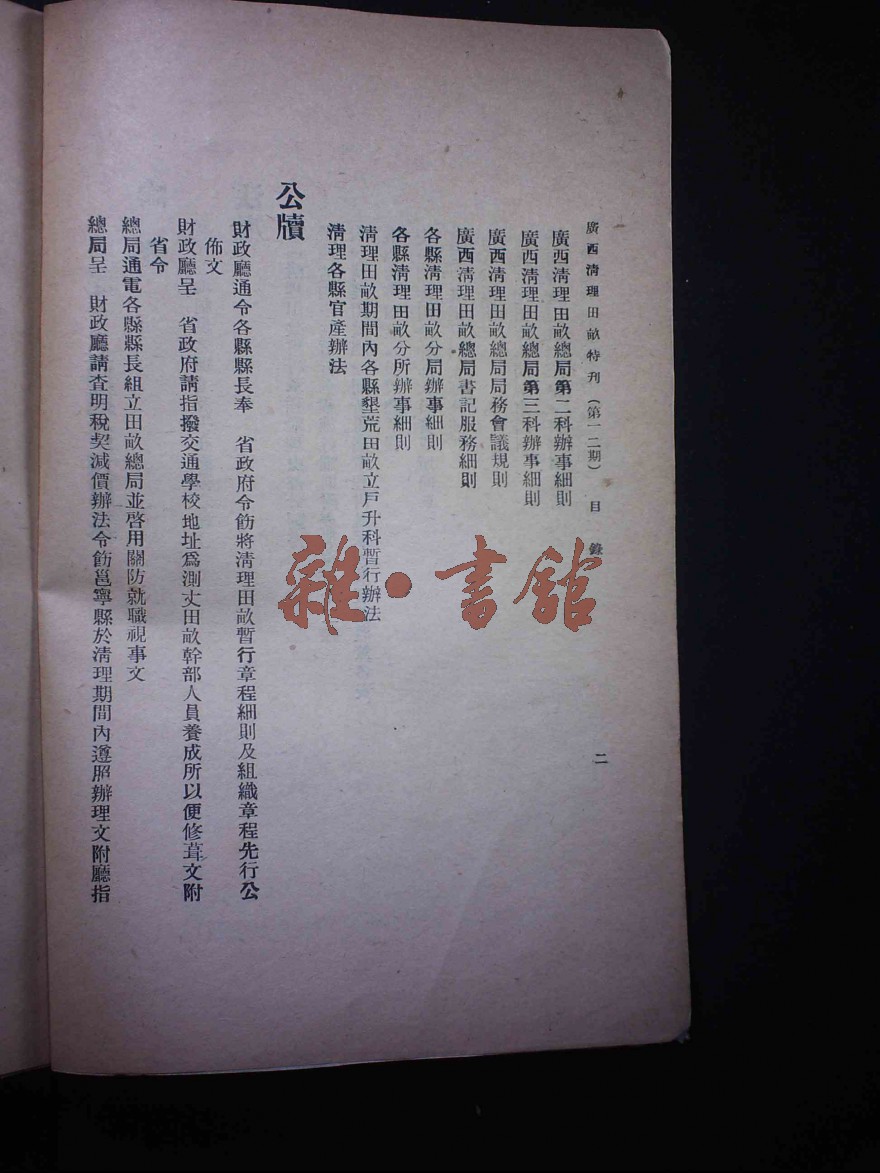 廣西清理田畝特刊（第一二期）　目錄　二
廣西清理田畝總局第二科辦事細則
廣西清理田畝總局第三科辦事細則
廣西清理田畝總局局務會議規則
廣西清理田畝總局書記服務細則
各縣清理田畝分局辦事細則
各縣清理田畝分所辦事細則
清理田畝期間內各縣墾荒田畝立戶升科暫行辦法
清理各縣官產辦法
公牘
財政廳通令各縣縣長奉　省政府令飭將清理田畝暫行章程細則及組織章程先行公
佈文
財政廳呈　省政府請指撥交通學校地址爲測丈田畝幹部人員養成所以便修葺文附
省令
總局通電各縣縣長組立田畝總局並啓用關防就職視事文
總局呈　財政廳請查明稅契減價辦法令飭邕寧縣於清理期間內遵照辦理文附廳指
雜·書館